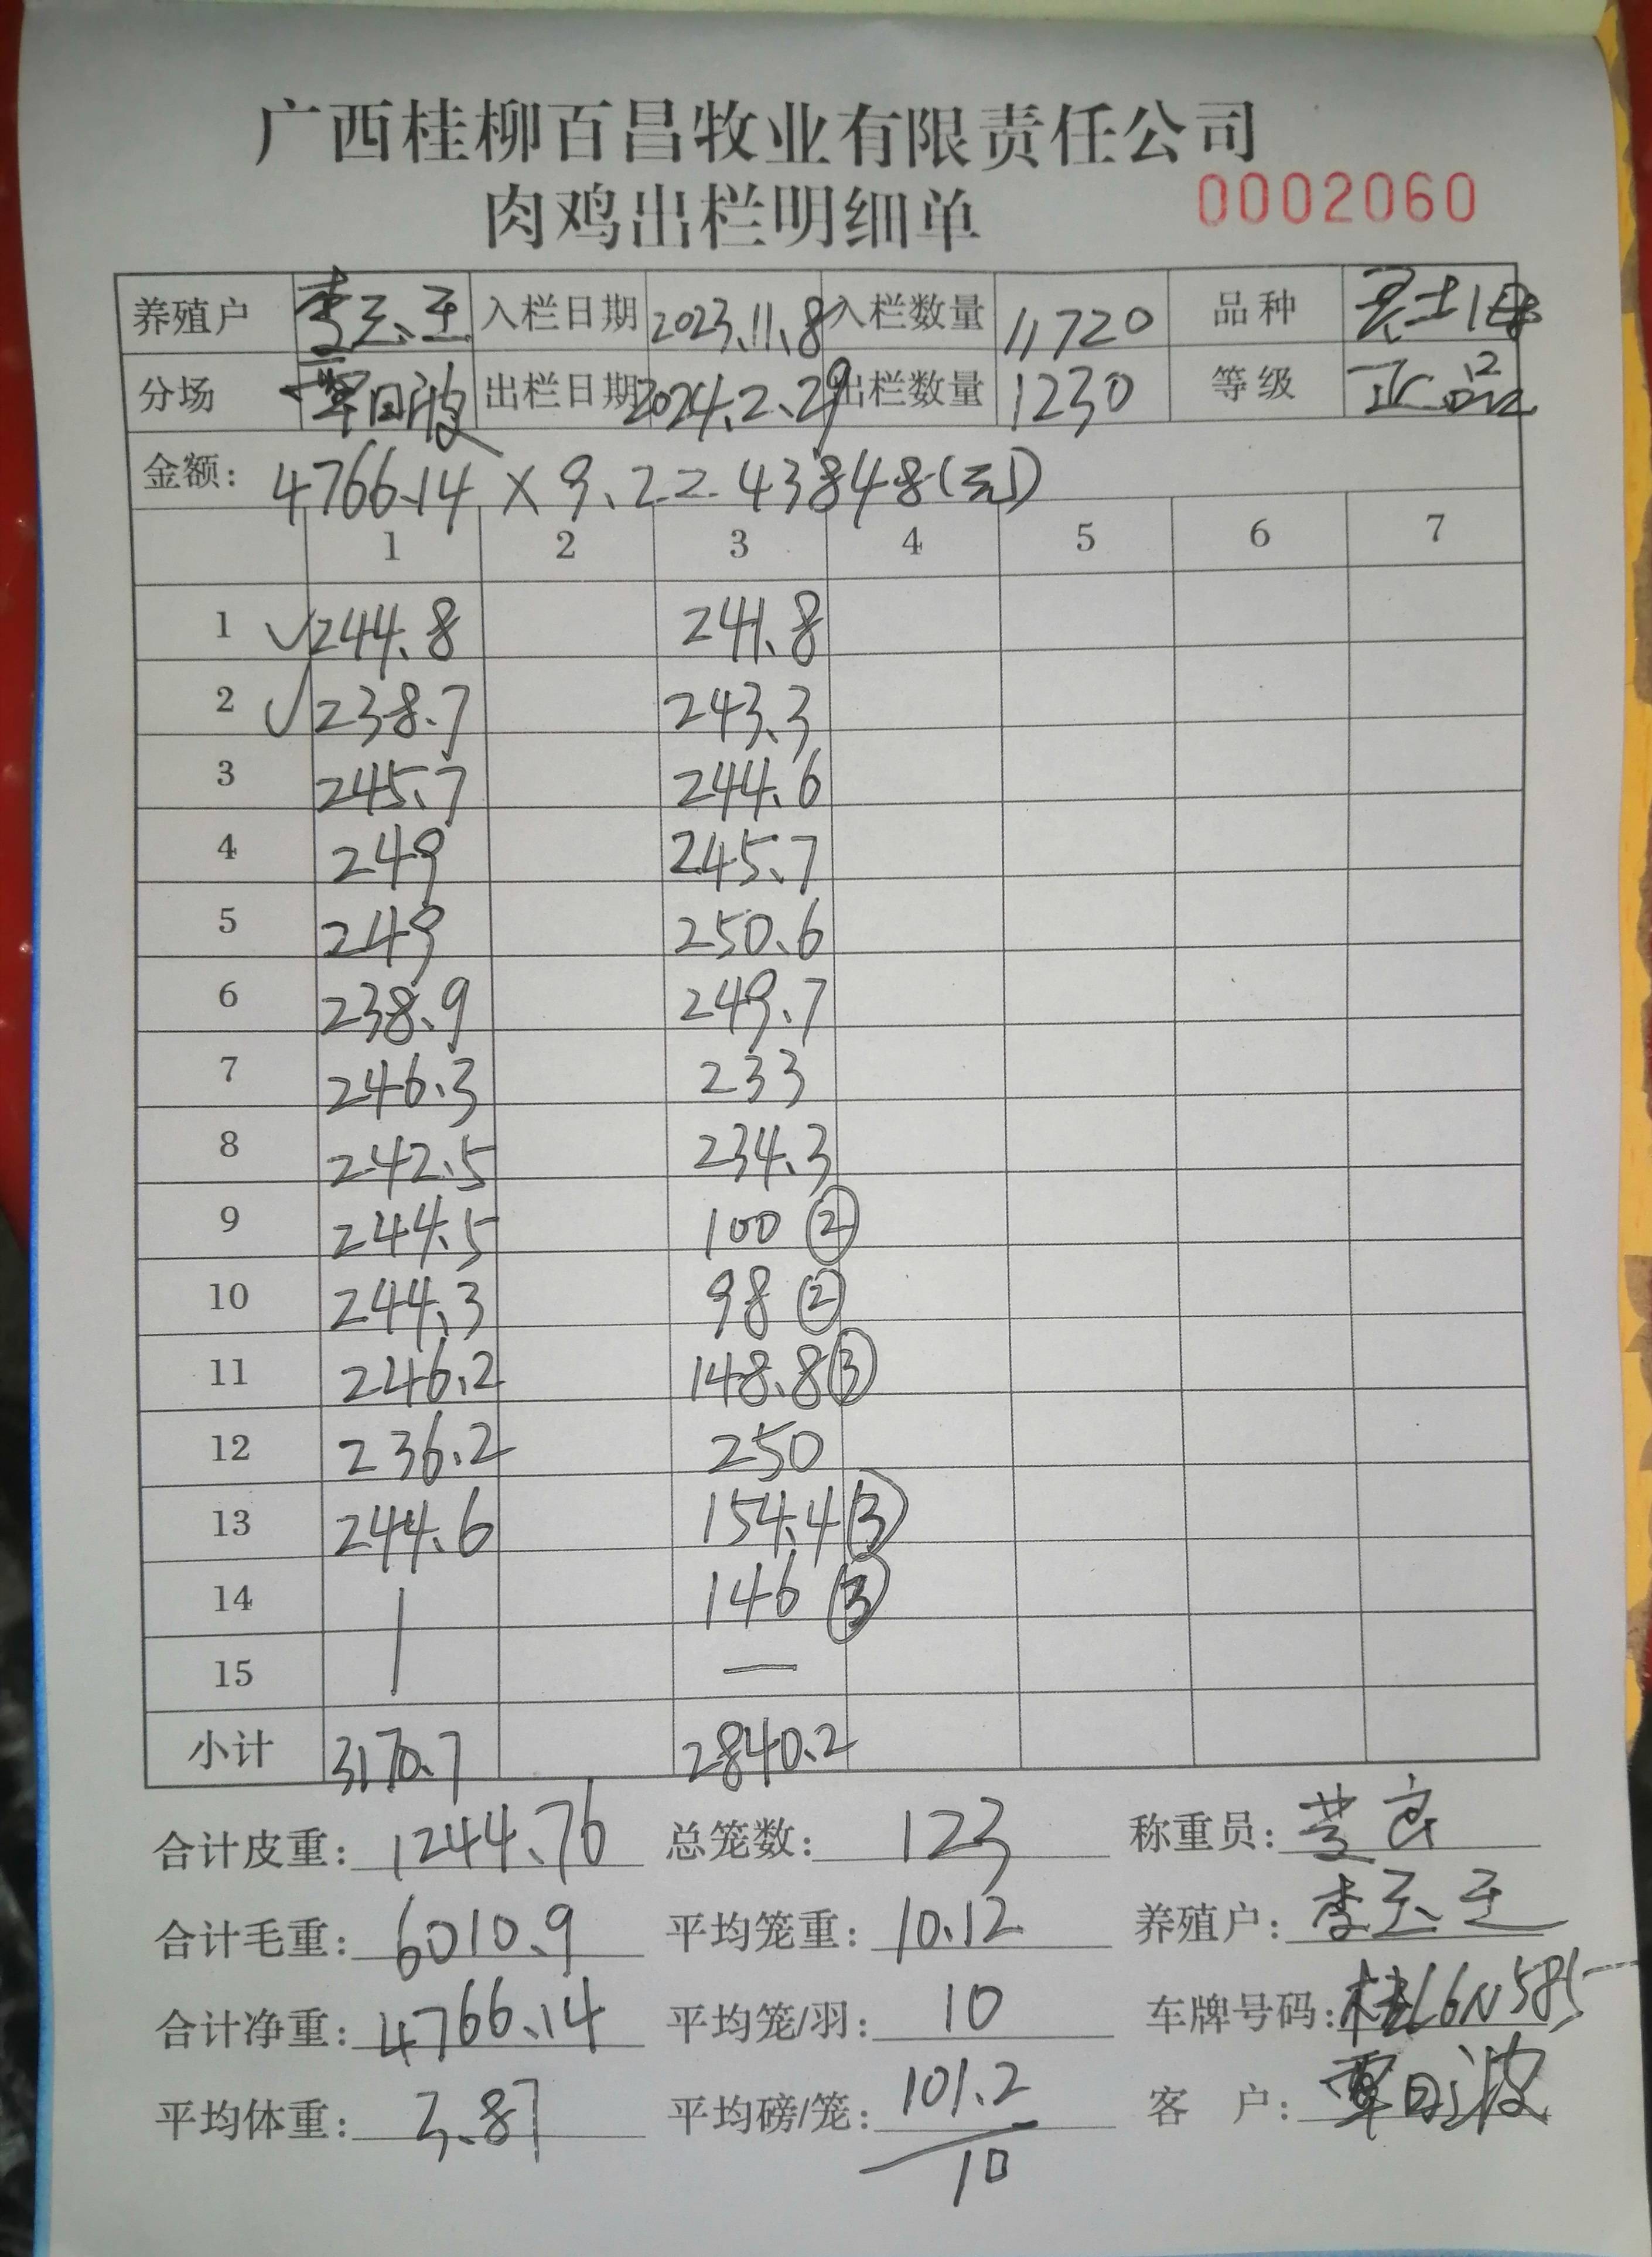 广西桂柳百昌牧业有限责任公司
肉鸡出栏明细单 0002060
养殖户 李玉玉 入栏日期 2023.11.8 入栏数量 11720 品种
分场 覃日波 出栏日期 2024.2.29 出栏数量 1230 等级 正品
金额: 4766.14 × 9.2 = 43848(元)
1 2 3 4 5 6 7
1 ✓244.8 241.8
2 ✓238.7 243.3
3 245.7 244.6
4 249 245.7
5 249 250.6
6 238.9 249.7
7 246.3 233
8 242.5 234.3
9 244.5 100 ②
10 244.3 98 ②
11 246.2 148.8 ③
12 236.2 250
13 244.6 154.4 ③
14 | 146 ③
15 —
小计 3170.7 2840.2
合计皮重: 1244.76 总笼数: 123 称重员:
合计毛重: 6010.9 平均笼重: 10.12 养殖户: 李玉玉
合计净重: 4766.14 平均笼/羽: 10 车牌号码: 桂L6N585
平均体重: 3.87 平均磅/笼: 101.2 客 户: 覃日波
10